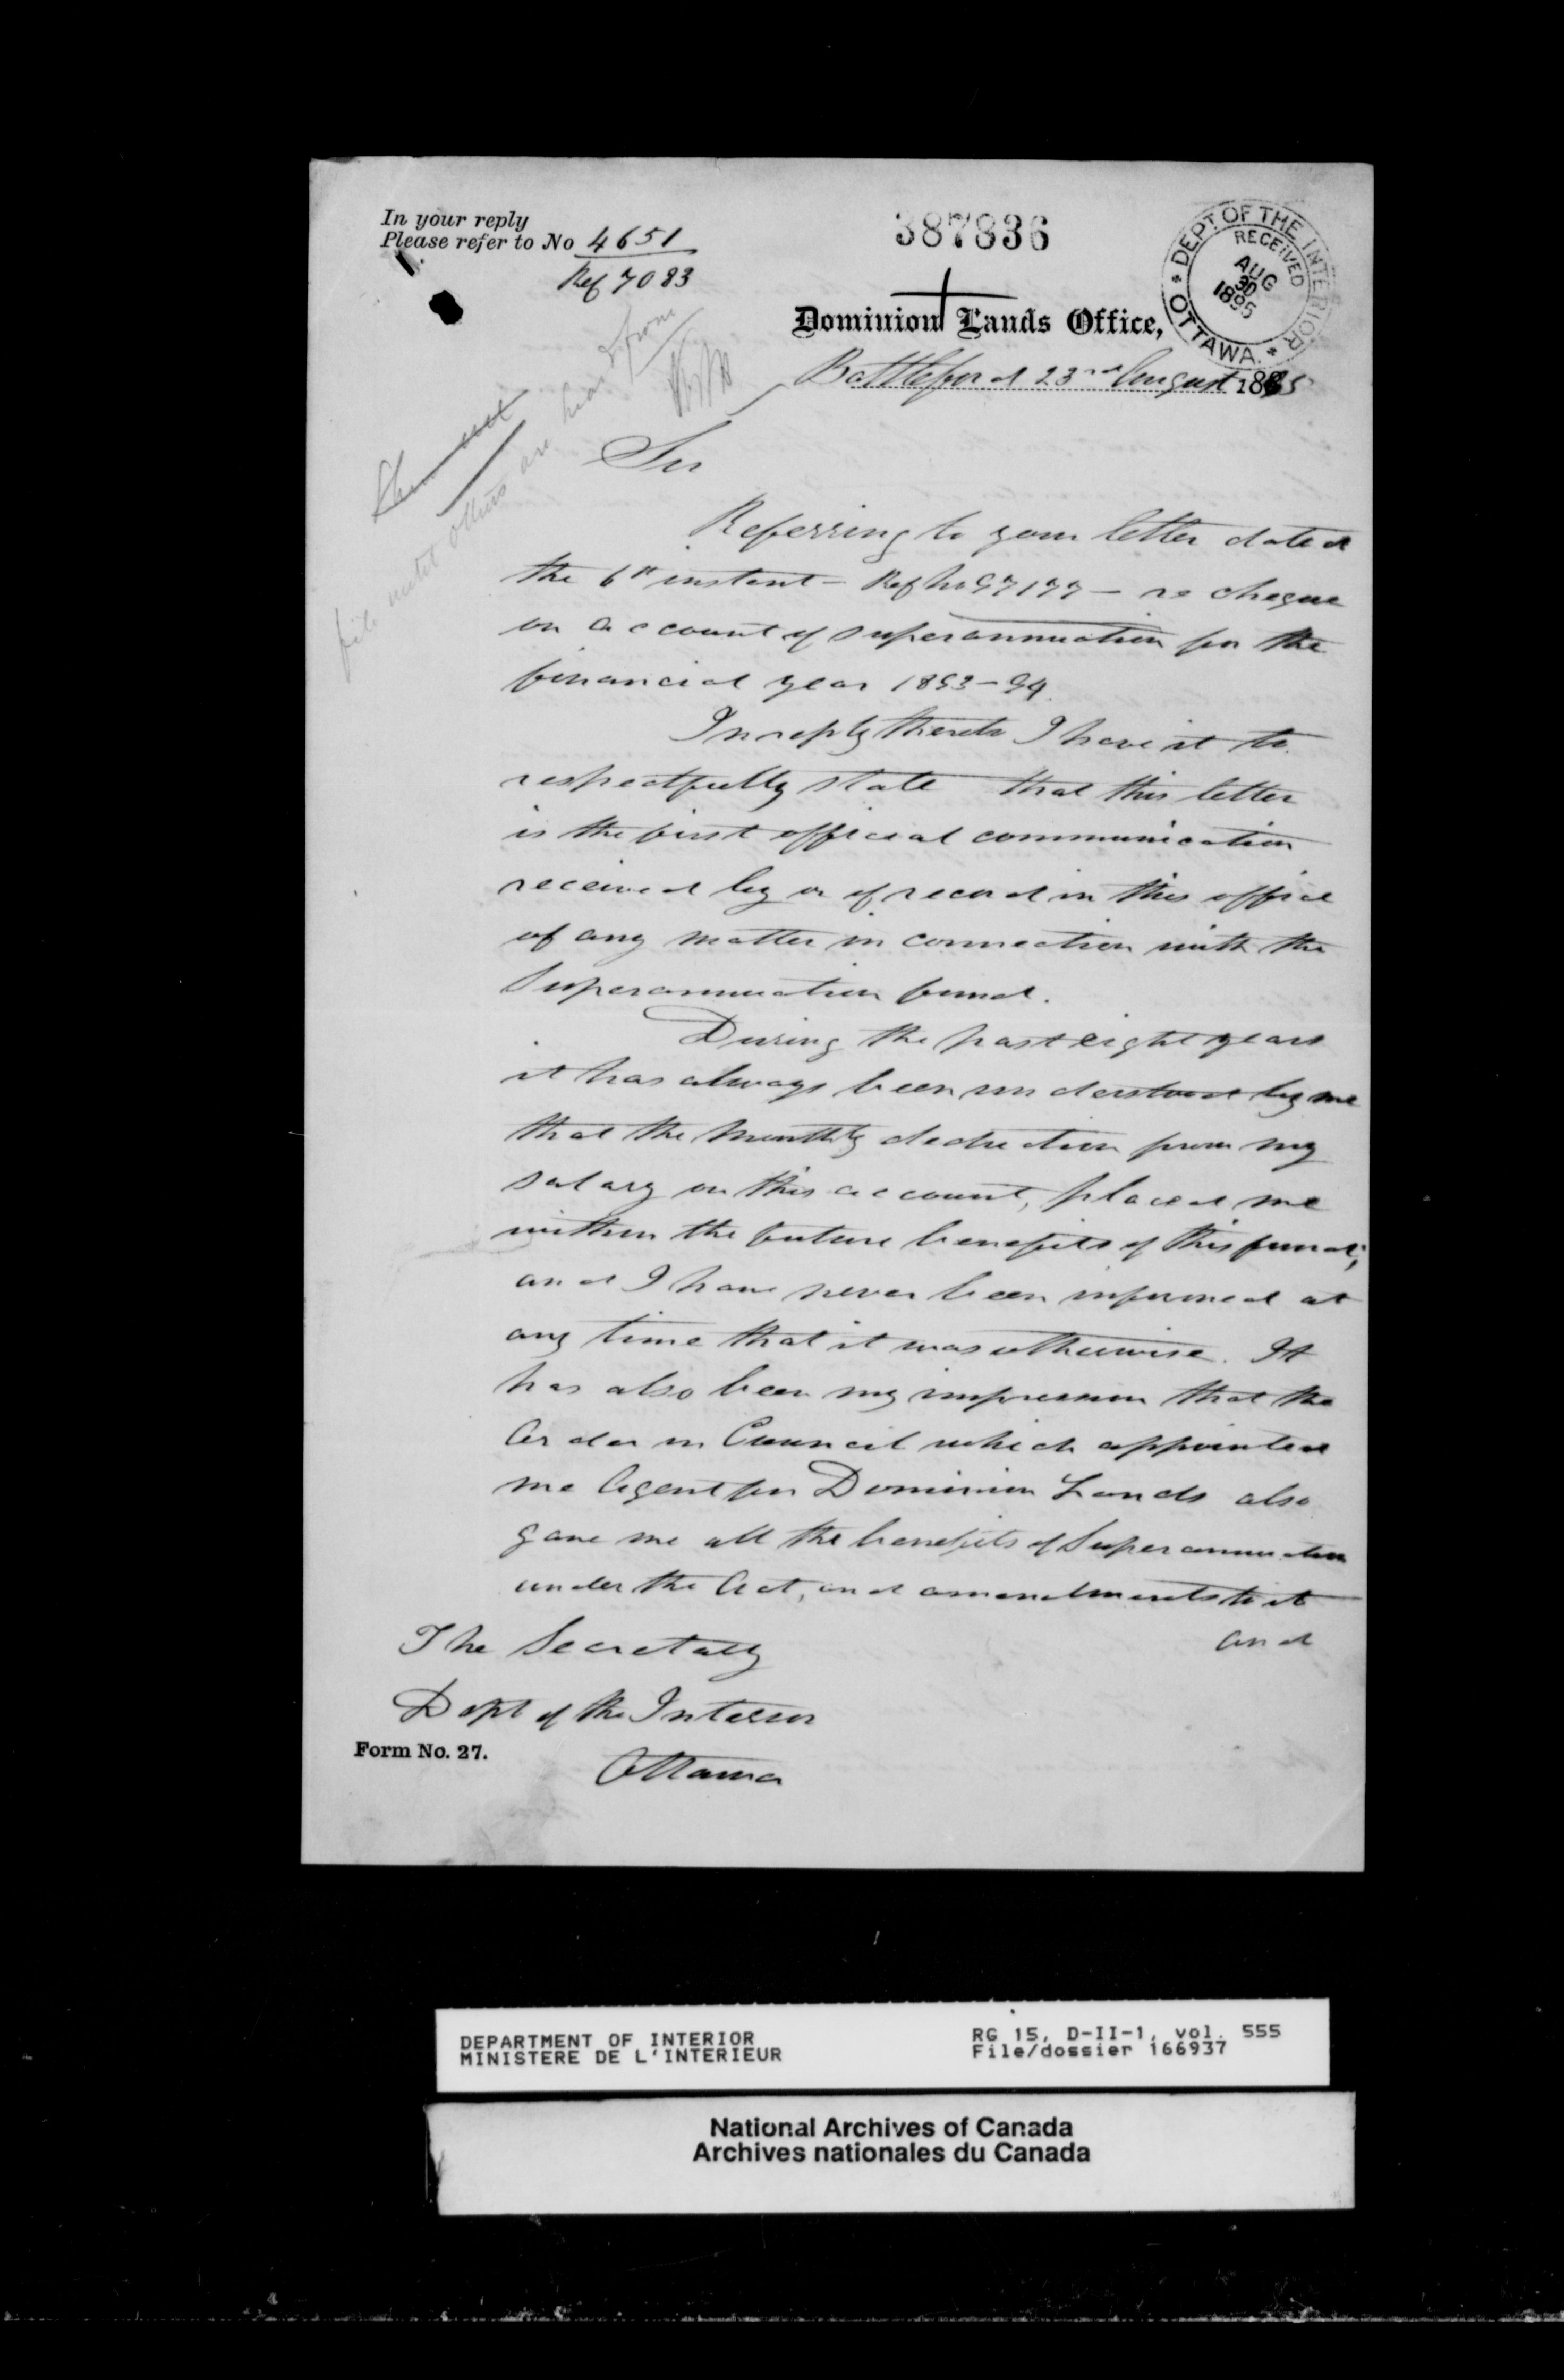 In your reply
Please refer to No 4651
Ref 7083
387836
DEPT OF THE INTERIOR
RECEIVED
AUG
30
1895
OTTAWA.
Dominion Lands Office,
Battleford 23rd August 1895
file until others are heard from
Sir
Referring to your letter dated
the 6th instant – Ref No 97177 – re cheque
on account of superannuation for the
financial year 1893–94.
In reply thereto I have it to
respectfully state that this letter
is the first official communication
received by or of record in this office
of any matter in connection with the
Superannuation fund.
During the past eight years
it has always been understood by me
that the monthly deduction from my
salary on this account, placed me
within the future benefits of this fund;
and I have never been informed at
any time that it was otherwise. It
has also been my impression that the
Order in Council which appointed
me Agent for Dominion Lands also
gave me all the benefits of Superannuation
under the Act, and amendments to it
and
The Secretary
Dept of the Interior
Form No. 27.
Ottawa
DEPARTMENT OF INTERIOR
MINISTERE DE L'INTERIEUR
RG 15, D-II-1, vol. 555
File/dossier 166937
National Archives of Canada
Archives nationales du Canada